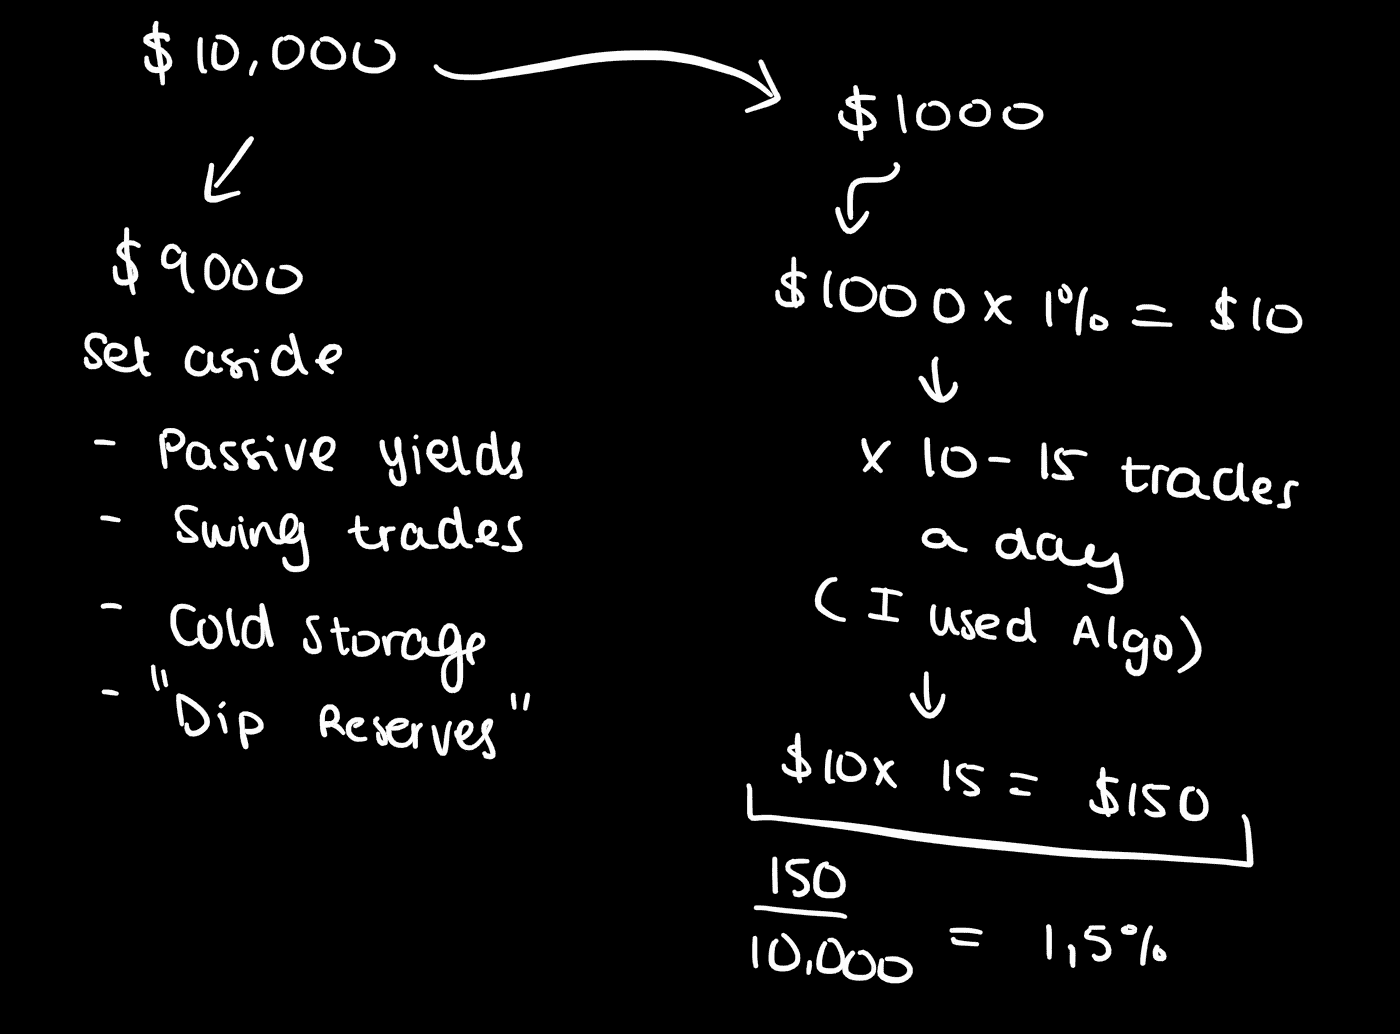 $10,000
$9000
set aside
- Passive yields
- Swing trades
- Cold storage
- "Dip Reserves"
$1000
$1000 x 1% = $10
x 10-15 trades
a day
(I used Algo)
$10x 15 = $150
150
10,000
= 1,5%